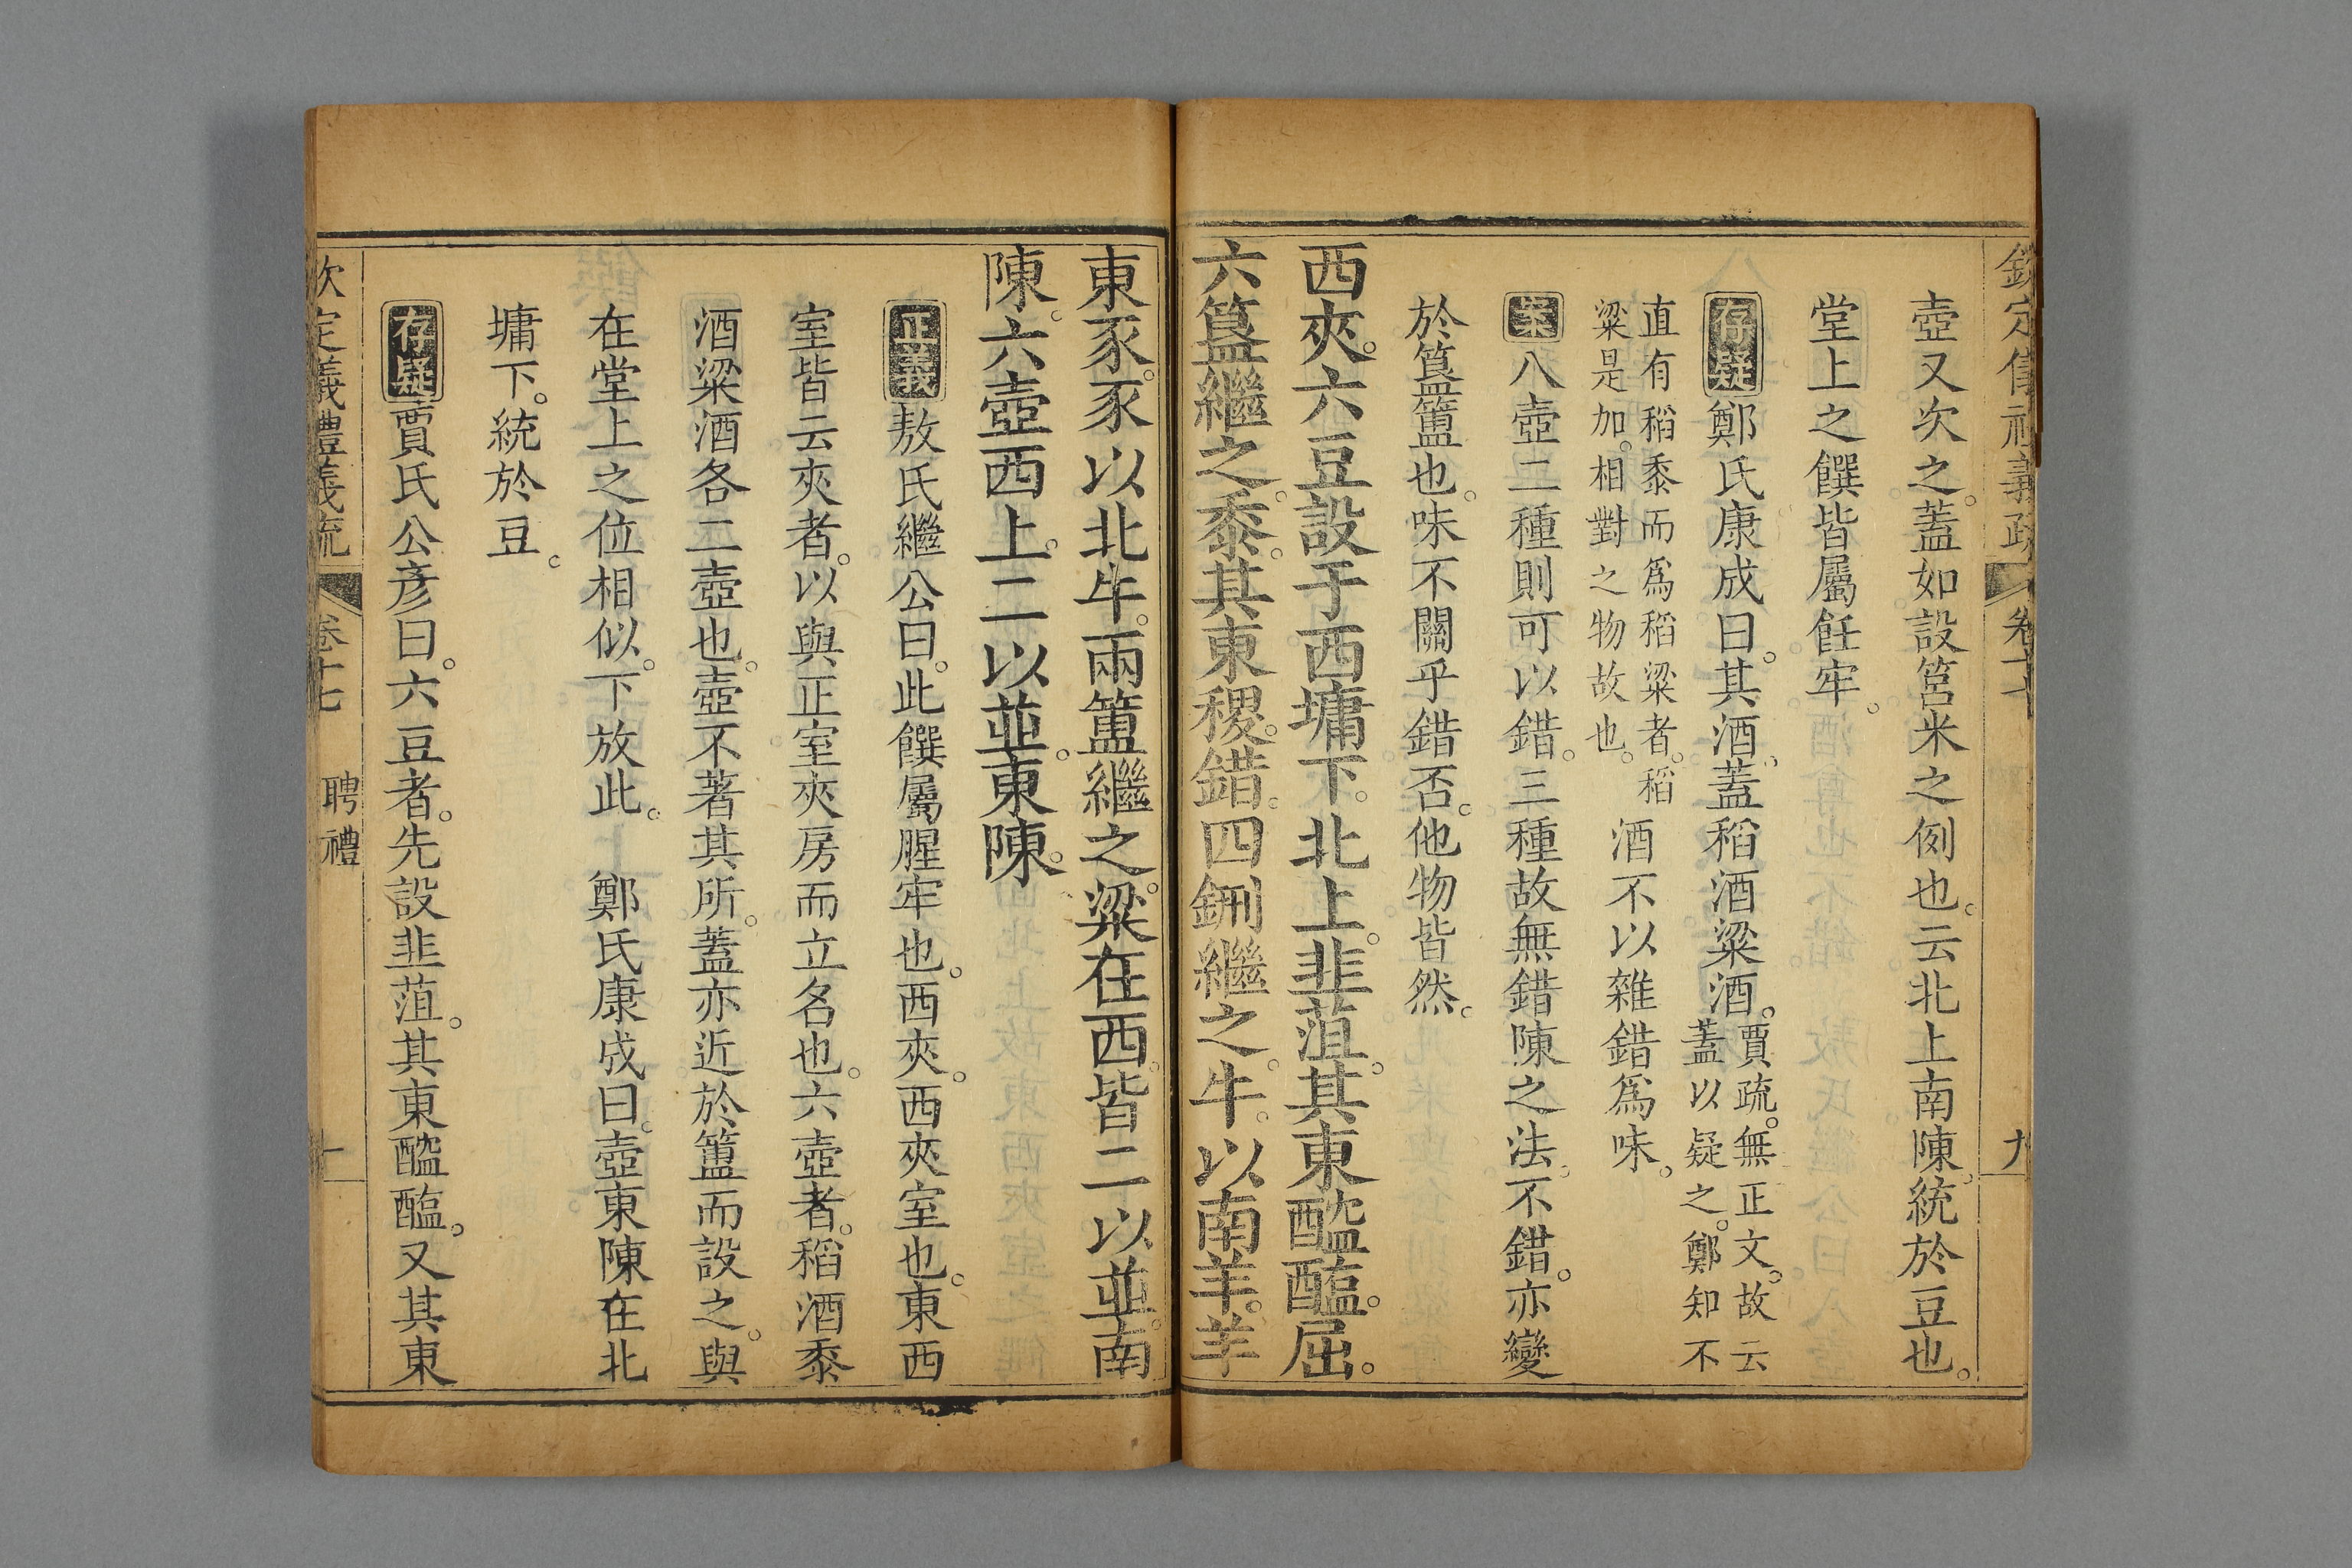 欽定儀禮義疏 卷十七 九
壺又次之。蓋如設筥米之例也。云北上南陳。統於豆也。
堂上之饌皆屬飪牢。
存疑鄭氏康成曰。其酒。蓋稻酒粱酒。賈疏。無正文。故云蓋以疑之。鄭知不
直有稻黍而爲稻粱者。稻粱是加。相對之物故也。酒不以雜錯爲味。
案八壺二種則可以錯。三種故無錯陳之法。不錯。亦變
於簋簠也。味不關乎錯否。他物皆然。
西夾。六豆設于西墉下。北上。韭菹。其東醓醢。屈。
六簋繼之。黍。其東稷。錯。四鉶繼之。牛。以南羊。羊
東豕。豕以北牛。兩簠繼之。粱在西。皆二以並。南
陳。六壺西上。二以並。東陳。
正義敖氏繼公曰。此饌屬腥牢也。西夾。西夾室也。東西
室皆云夾者。以與正室夾房而立名也。六壺者。稻酒黍
酒粱酒各二壺也。壺不著其所。蓋亦近於簠而設之。與
在堂上之位相似。下放此。 鄭氏康成曰。壺東陳在北
墉下。統於豆。
存疑賈氏公彦曰。六豆者。先設韭菹。其東醓醢。又其東
欽定儀禮義疏 卷十七 聘禮 十